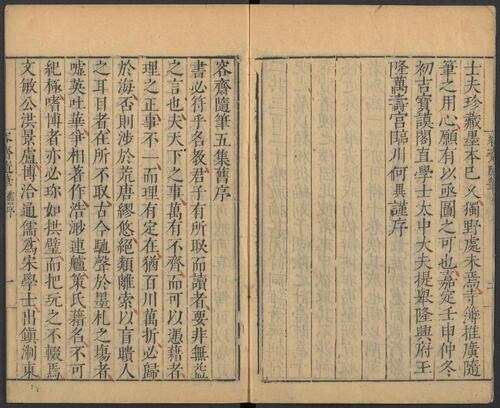 士夫珍藏墨本已久獨野處未焉寺僧推廣隨
筆之用心願有以亟圖之可也嘉定壬申仲冬
初吉寶謨閣直學士太中大夫提舉隆興府玉
隆萬壽官臨川何異謹序
容齋隨筆五集舊序
書必符乎名教君子有所取而讀者要非無益
之言也夫天下之事萬有不齊而可以憑藉者
理之正事不一而理有定在猶百川萬折必歸
於海否則涉於荒唐繆悠絕類離索以盲聵人
之耳目者在所不取古今馳聲於墨札之場者
噓英吐華爭相著作浩渺連艫策氏籍名不可
紀極嗜博者亦必珎如拱璧而把玩之不輟焉
文敏公洪景盧博洽通儒爲宋學士出鎮浙東